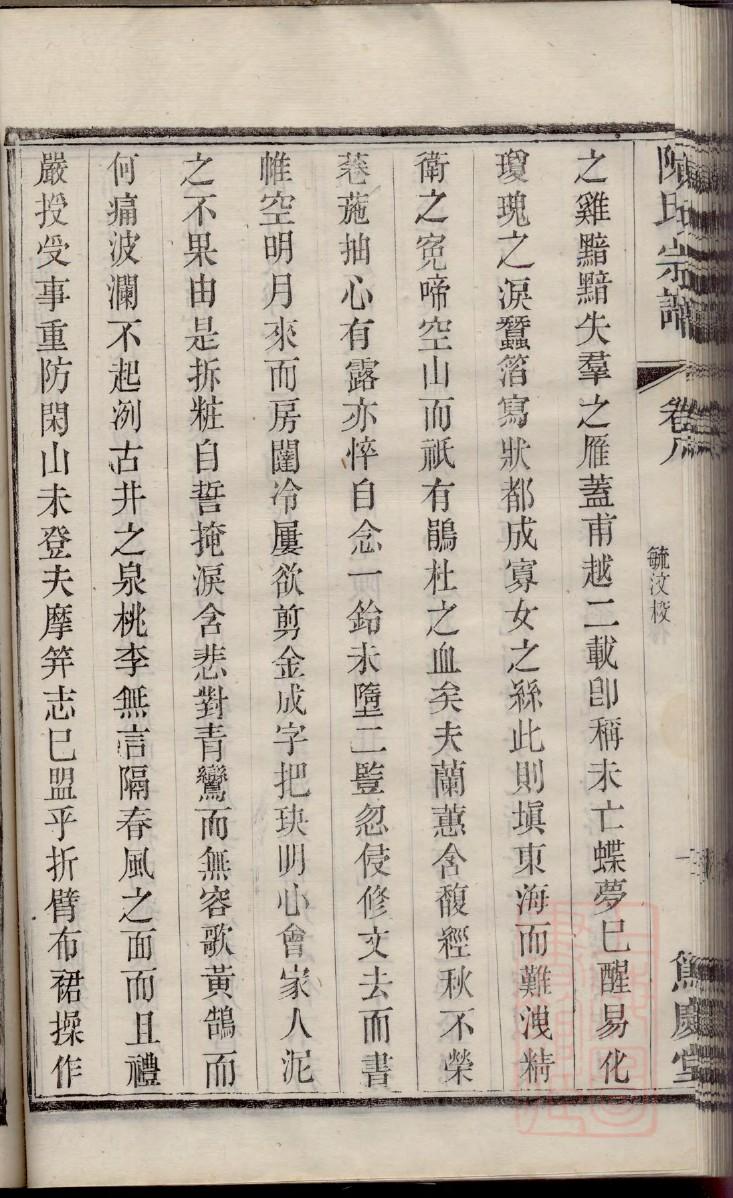 陳氏宗譜
卷八
毓汶校
篤慶堂
之雞黯黯失羣之雁蓋甫越二載卽稱未亡蝶夢巳醒易化
瓊瑰之淚蠶箔寫狀都成寡女之絲此則塡東海而難洩精
衛之寃啼空山而祇有鵑杜之血矣夫蘭蕙含馥經秋不榮
菤葹抽心有露亦悴自念一鈴未墮二豎忽侵修文去而書
帷空明月來而房闥冷屢欲剪金成字把玦明心會家人泥
之不果由是拆粧自誓掩淚含悲對青鸞而無容歌黃鵠而
何痛波瀾不起冽古井之泉桃李無言隔春風之面而且禮
嚴授受事重防閑山未登夫摩笄志巳盟乎折臂布裙操作